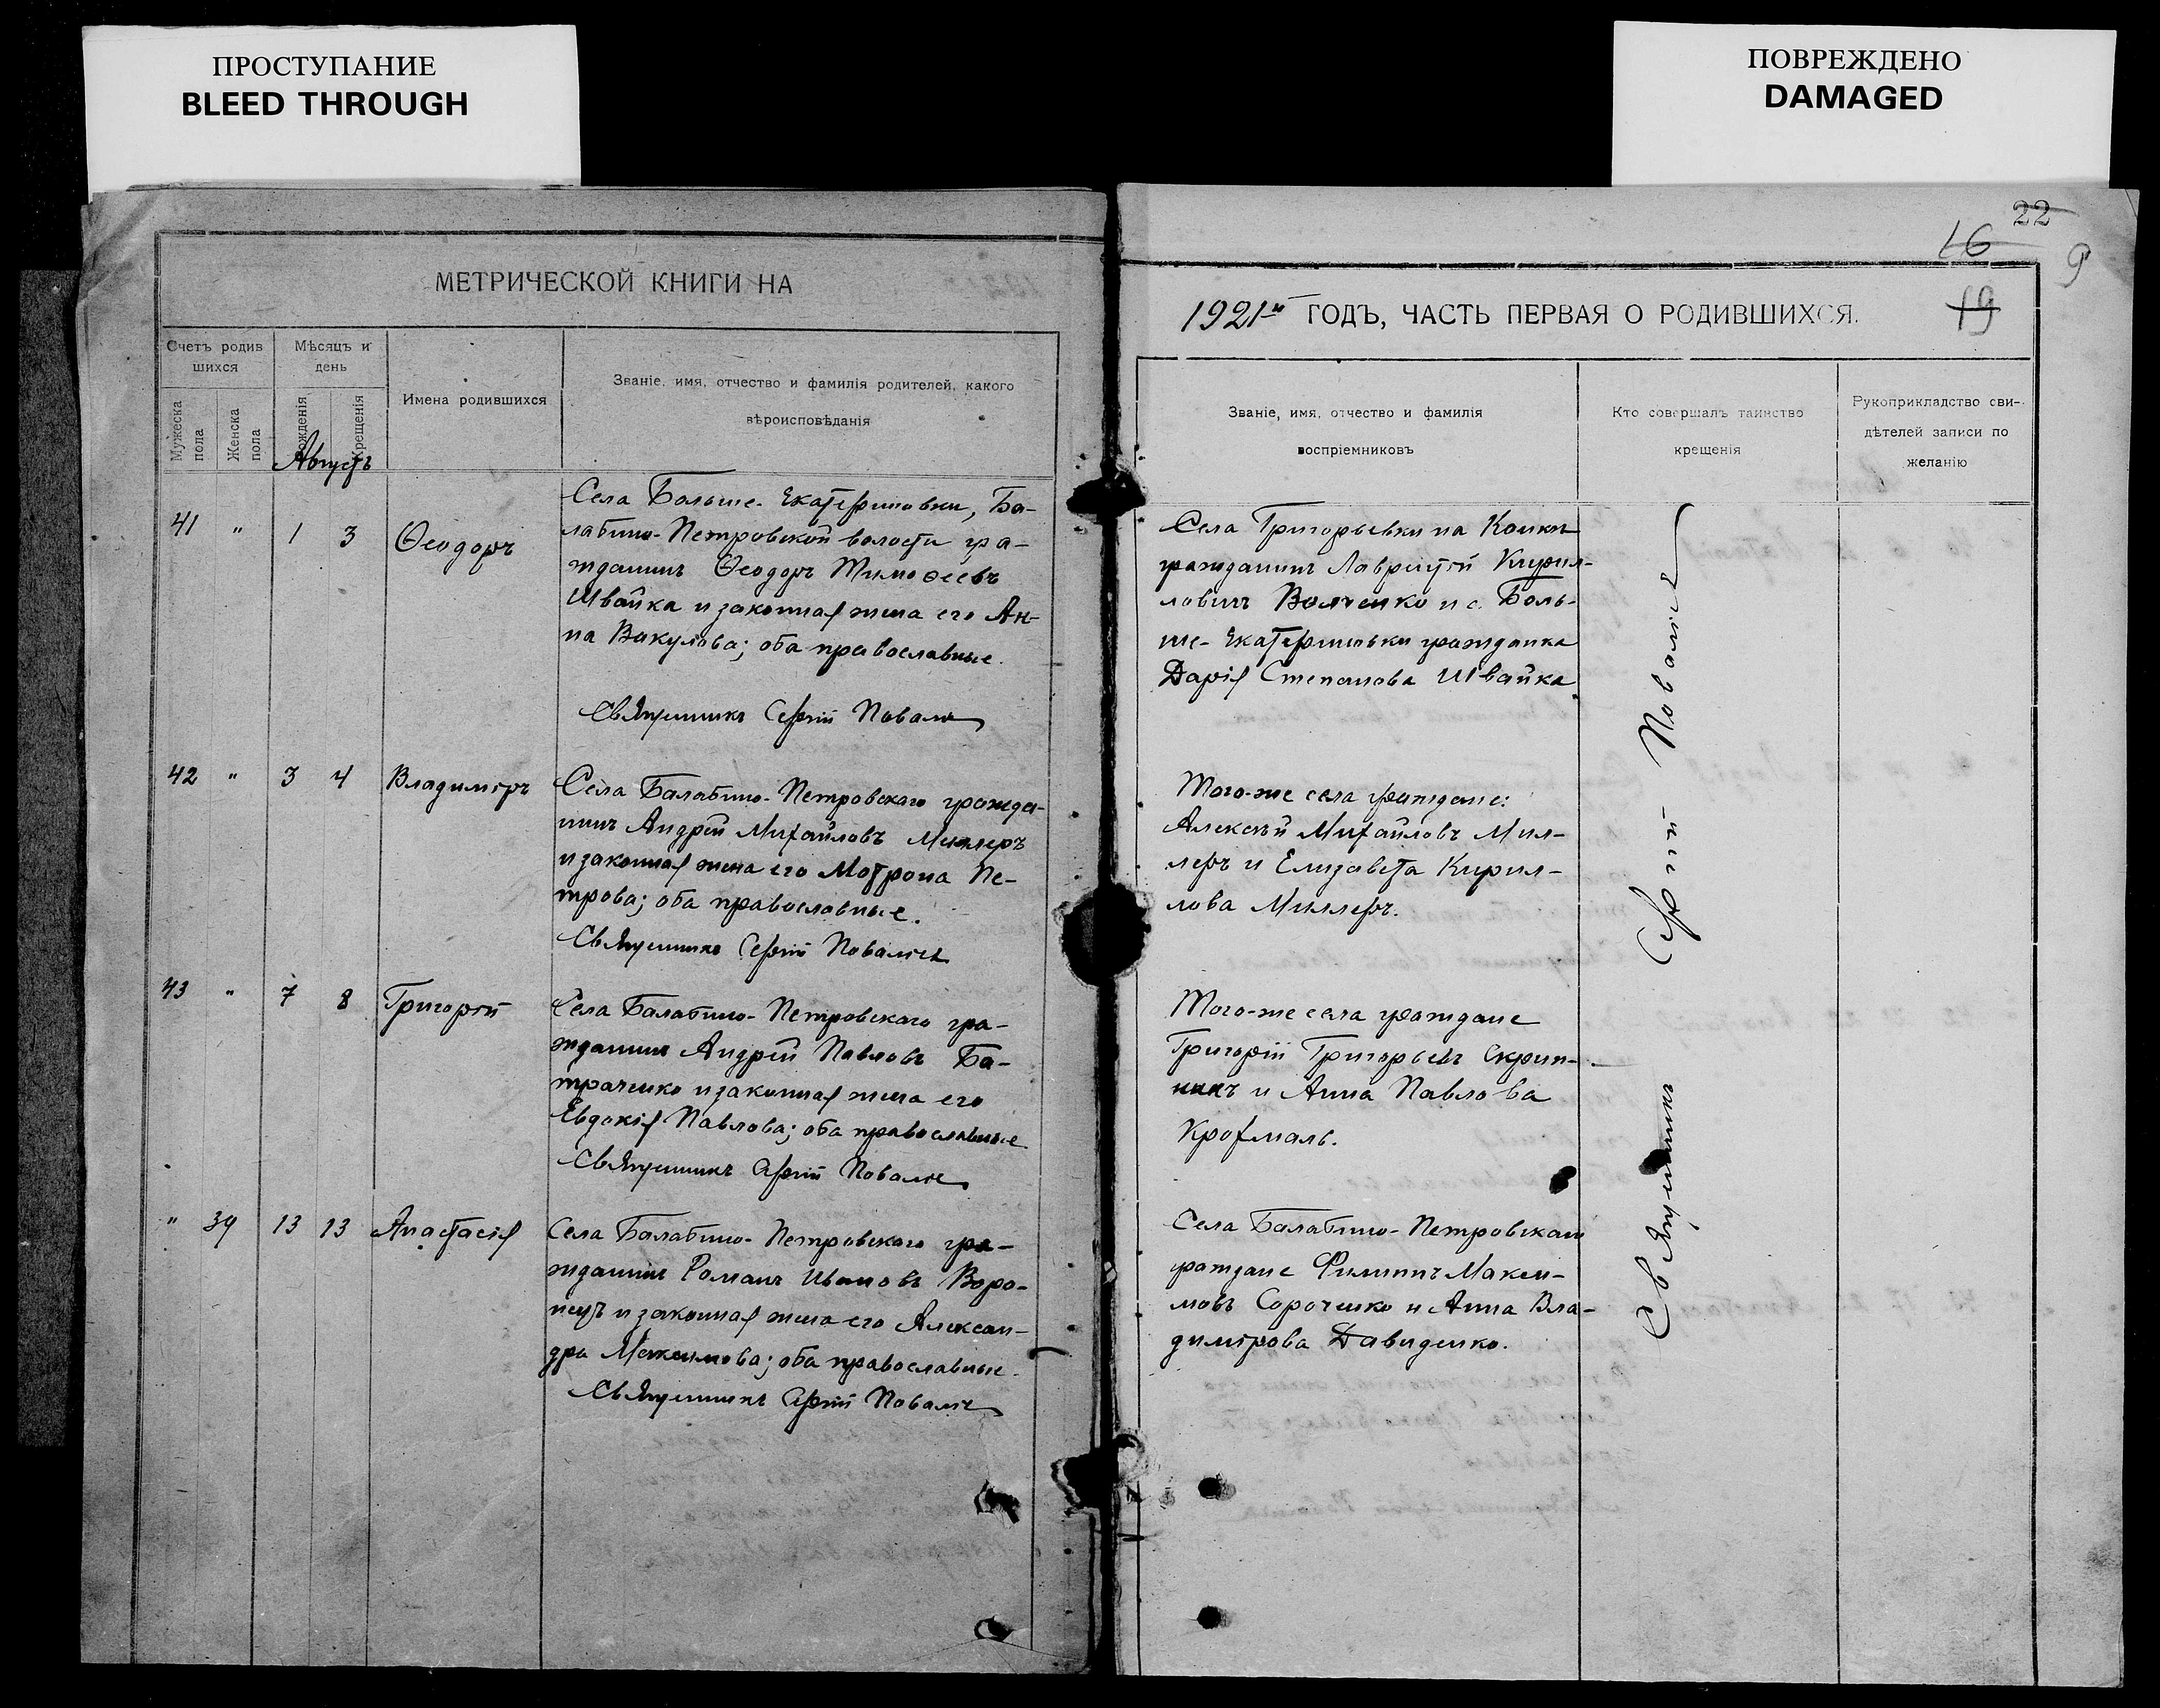 ПРОСТУПАНИЕ
BLEED THROUGH
ПОВРЕЖДЕНО
DAMAGED
МЕТРИЧЕСКОЙ КНИГИ НА
Счетъ родив
шихся
Мѣсяцъ и
день
Мужеска
пола
Женска
пола
Рожденія
Крещенія
Имена родившихся
Званіе, имя, отчество и фамилія родителей, какого
вѣроисповѣданія
Августъ
41 " 1 3 Ѳеодоръ
Села Больше-Екатериновки, Ба-
лабино-Петровской волости гра-
жданинъ Ѳеодоръ Тимоѳеевъ
Швайка и законная жена его Ан-
на Вакулова; оба православные.
Священникъ Сергій Поваліе
42 " 3 4 Владиміръ
Села Балабино-Петровскаго гражда-
нинъ Андрей Михайловъ Миллеръ
и законная жена его Мотрона Пе-
трова; оба православные.
Священникъ Сергій Поваліе
43 " 7 8 Григорій
Села Балабино-Петровскаго гра-
жданинъ Андрей Павловъ Ба-
траченко и законная жена его
Евдокія Павлова; оба православные
Священникъ Сергій Поваліе
" 39 13 13 Анастасія
Села Балабино-Петровскаго гра-
жданинъ Романъ Ивановъ Воро-
нецъ и законная жена его Алексан-
дра Максимова; оба православные.
Священникъ Сергій Поваліе
22
16
9
19
1921й ГОДЪ, ЧАСТЬ ПЕРВАЯ О РОДИВШИХСЯ.
Званіе, имя, отчество и фамилія
воспріемниковъ
Кто совершалъ таинство
крещенія
Рукоприкладство сви-
дѣтелей записи по
желанію
Села Григорьевки на Конкѣ
гражданинъ Лаврентій Кирил-
ловичъ Волченко и с. Боль-
ше-Екатериновки гражданка
Дарія Степанова Швайка
Того-же села граждане:
Алексѣй Михайловъ Мил-
леръ и Елизавета Кирил-
лова Миллеръ.
Того-же села граждане
Григорій Григорьевъ Скрип-
никъ и Анна Павлова
Крохмаль.
Села Балабино-Петровскаго
граждане Филиппъ Макси-
мовъ Сороченко и Анна Вла-
димірова Давиденко.
Священникъ Сергій Поваліе